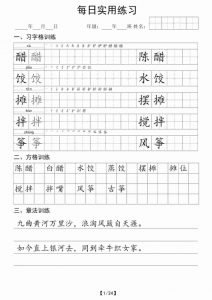 每日实用练习
年 月 日 年级: 年 班 练习者:
一、习字格训练
cù
醋 醋 陈醋
饺 饺 水饺
摊 摊 摆摊
拌 拌 搅拌
zhēng
筝 筝 风筝
二、方格训练
陈醋 白醋 水饺 蒸饺 摆摊 摊位
搅拌 拌嘴 风筝 古筝
三、章法训练
九曲黄河万里沙，浪淘风簸自天涯。
如今直上银河去，同到牵牛织女家。
【1/24】